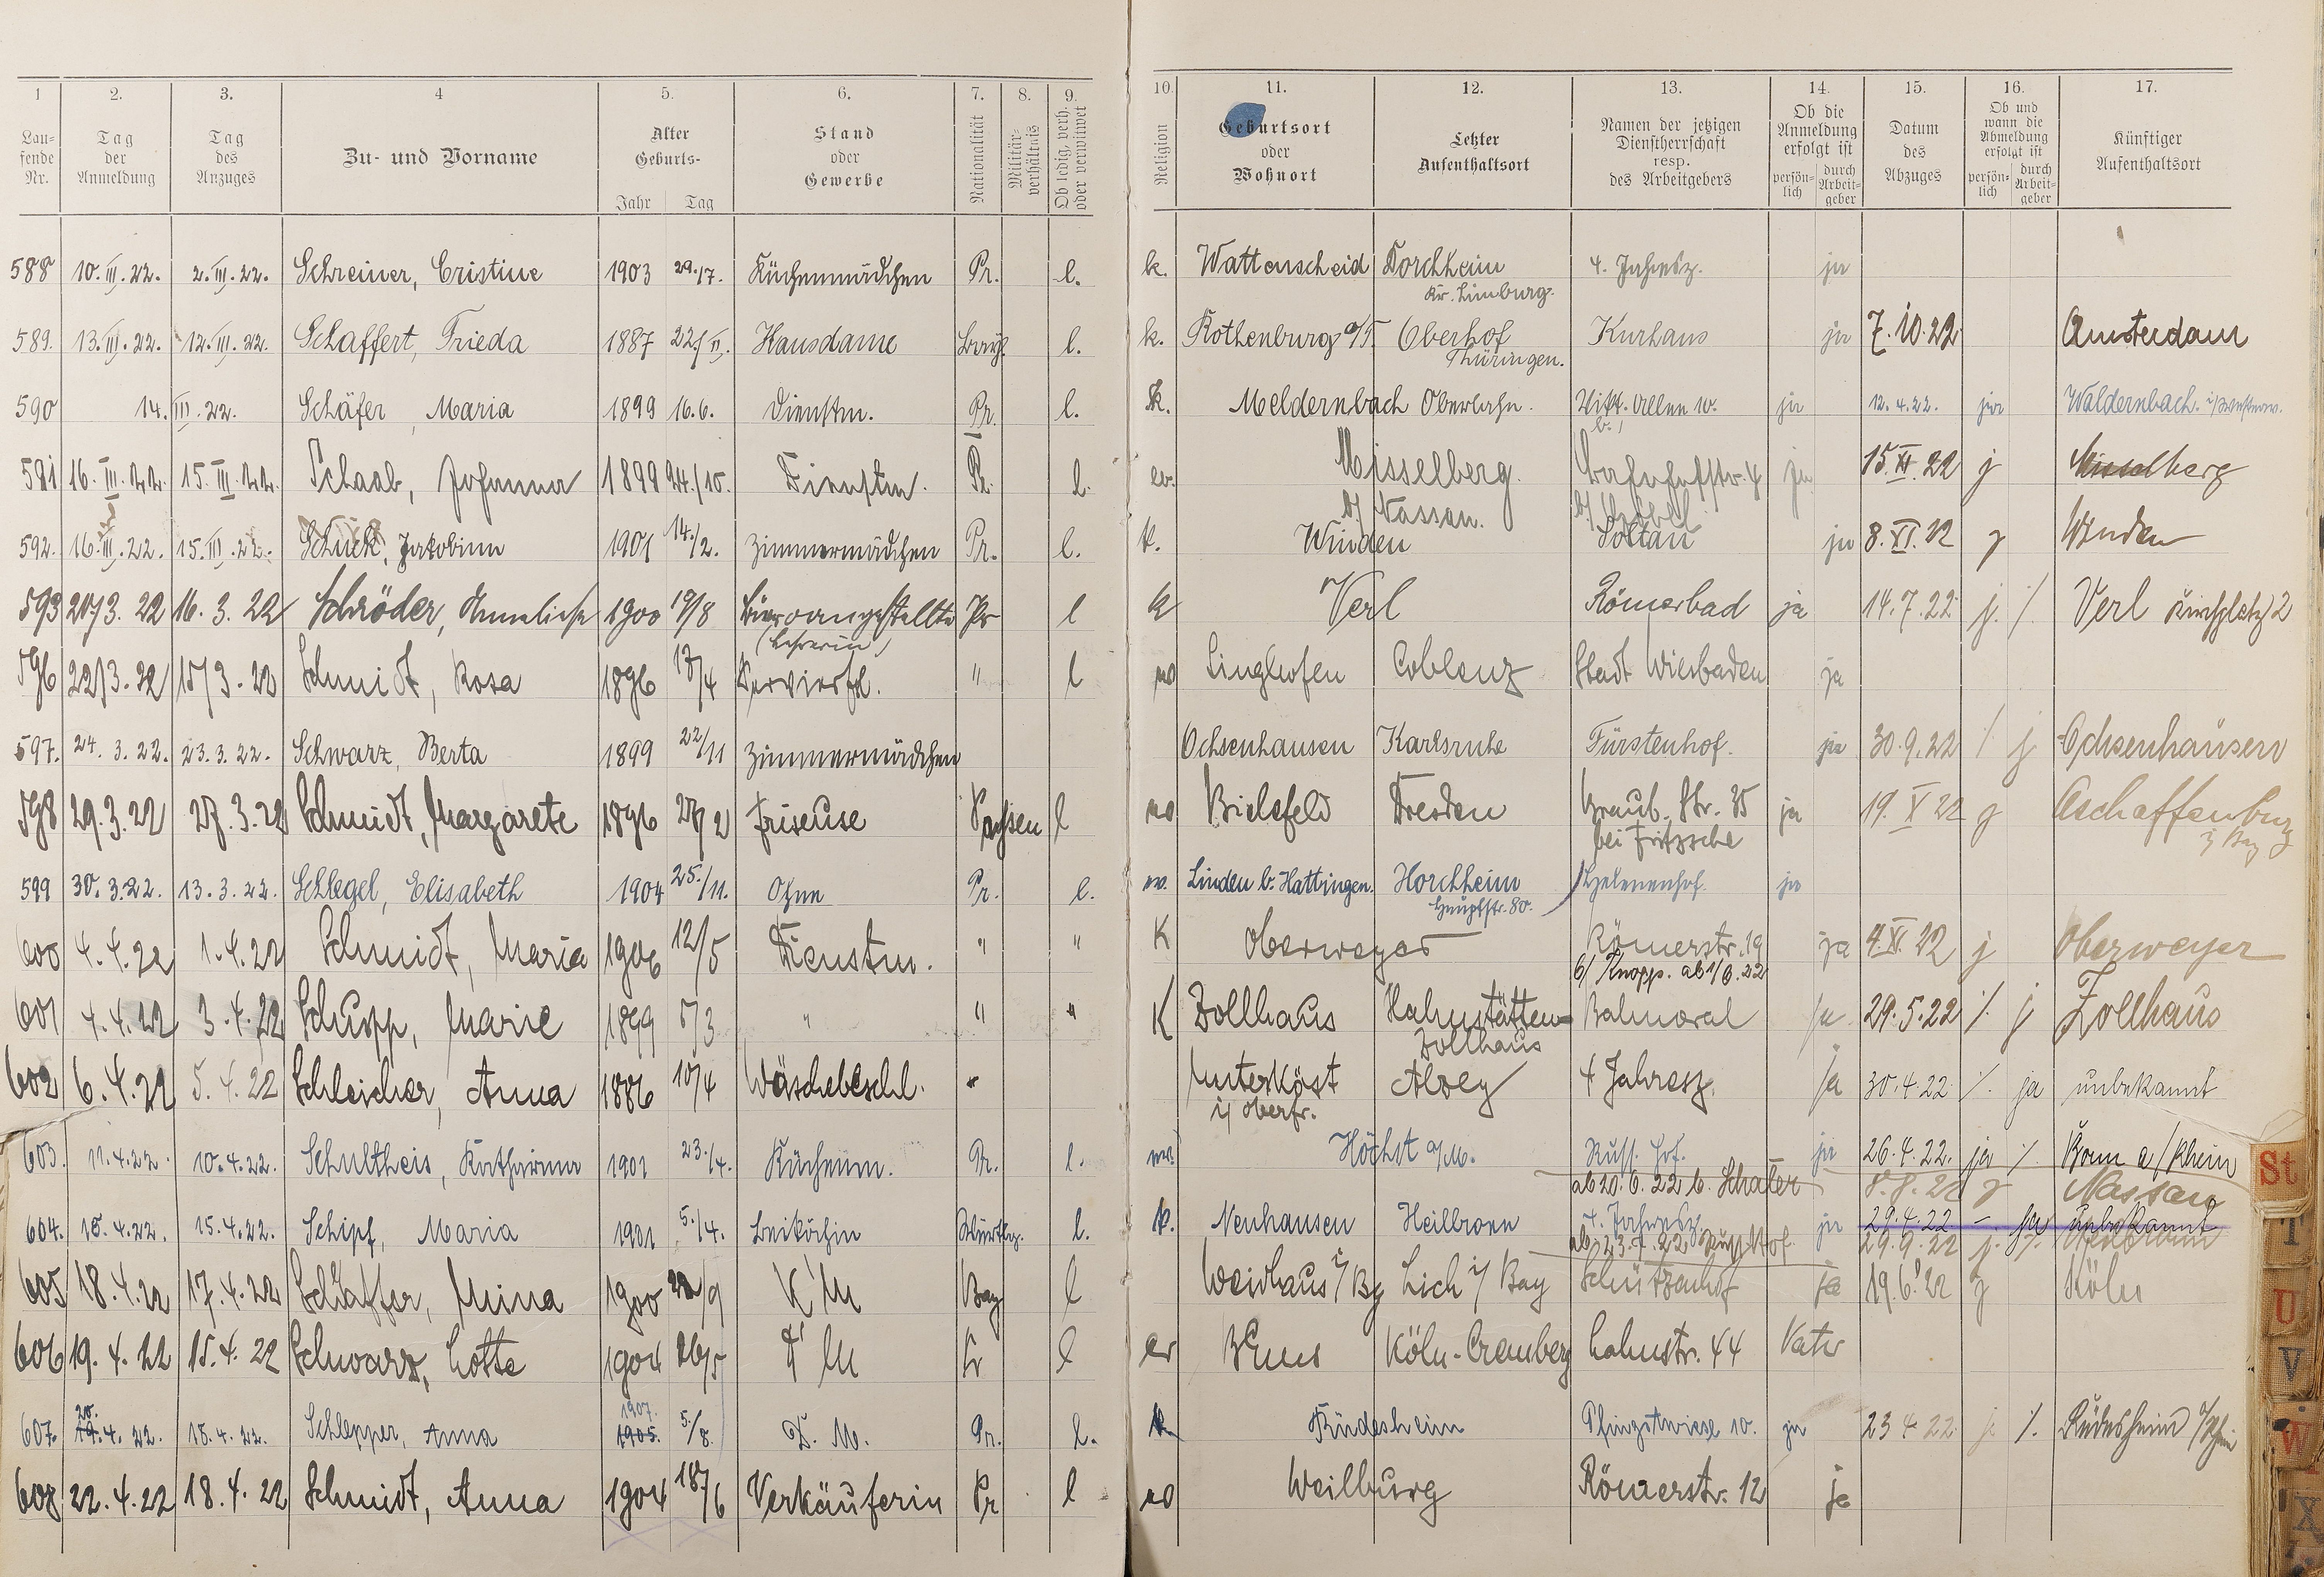 1 2. 3. 4 5. 6. 7. 8. 9. 10. 11. 12. 13. 14. 15. 16. 17.
Lau-
fende
Nr.
Tag
der
Anmeldung
Tag
des
Anzuges
Zu- und Vorname
Alter
Geburts-
Jahr Tag
Stand
oder
Gewerbe
Nationalität
Militär-
verhältnis
Ob ledig, verh.
oder verwitwet
Religion
Geburtsort
oder
Wohnort
Letzter
Aufenthaltsort
Namen der jetzigen
Dienstherrschaft
resp.
des Arbeitgebers
Ob die
Anmeldung
erfolgt ist
persön-
lich
durch
Arbeit-
geber
Datum
des
Abzuges
Ob und
wann die
Abmeldung
erfolgt ist
persön-
lich
durch
Arbeit-
geber
Künftiger
Aufenthaltsort
588 10. III. 22. 2. III. 22. Schreiner, Cristine 1903 29./7. Küchenmädchen Pr. l. k. Wattenscheid Dorchheim 4. Jahresz. ja
Kr. Limburg.
589. 13. III. 22. 12. III. 22. Schaffert, Frieda 1887 22./II. Hausdame Bay. l. k. Rothenburg o/T. Oberhof Kurhaus ja 7. 10. 22 Amsterdam
Thüringen.
590 14. III. 22. Schäfer, Maria 1899 16. 6. Dienstm. Pr. l. k. Meldernbach Oberlahn. Vikt. Allee 10. ja 12. 4. 22. ja Waldernbach i/Westerw.
591 16. III. 22. 15. III. 22. Schaab, Johanna 1899 24./10. Dienstm. Pr. l. ev. Misselberg. Bahnhofstr. 4 ja 15. XI. 22 j Misselberg
b/ Nassau.
592. 16. III. 22. 15. III. 22. Schuck, Jakobine 1901 14./2. Zimmermädchen Pr. l. k. Winden Soltau ja 8. XI. 22 j Winden
593 20/3. 22 16. 3. 22 Schröder, Anneliese 1900 19/8 Büroangestellte Pr l k Verl Römerbad ja 14. 7. 22 j. /. Verl Kirchplatz 2
(Lehrerin)
596 22/3. 22 15/3. 22 Schmidt, Rosa 1896 17/4 Servierfrl. " l ev Singhofen Coblenz Stadt Wiesbaden ja
597. 24. 3. 22. 23. 3. 22. Schwarz, Berta 1899 22/11 Zimmermädchen Ochsenhausen Karlsruhe Fürstenhof. ja 30. 9. 22 /. j Ochsenhausen
598 29. 3. 22 27. 3. 22 Schmidt, Margarete 1896 27/2 Friseuse Sachsen l ev Bielefeld Dresden Graub. Str. 35 ja 19. X 22 j Aschaffenburg
bei Fritzsche i/ Bay
599 30. 3. 22. 13. 3. 22. Schlegel, Elisabeth 1904 25./11. Ohne Pr. l. ev. Linden b. Hattingen. Horchheim Helenenhof. ja
Hauptstr. 80.
600 4. 4. 22 1. 4. 22 Schmidt, Maria 1906 12/5 Dienstm. " " K Oberweyer Römerstr. 19 ja 4. XI. 22 j Oberweyer
b/ Knopp. ab 1/6. 22
601 4. 4. 22 3. 4. 22 Schupp, Marie 1899 5/3 " " " K Zollhaus Hahnstätten= Balmoral ja 29. 5. 22 /. j Zollhaus
Zollhaus
602 6. 4. 22 5. 4. 22 Schleicher, Anna 1886 10/4 Wäschebeschl. " Unterköst Alzey 4 Jahresz. ja 30. 4. 22 /. ja unbekannt
i/ Oberfr.
603. 11. 4. 22. 10. 4. 22. Schultheis, Katharina 1901 23./4. Küchenm. Pr. l. ev. Höchst a/M. Russ. Hof. ja 26. 4. 22. ja /. Bonn a/Rhein
ab 20. 6. 22 b. Schäfer 8. 8. 22 j Nassau
604. 18. 4. 22. 15. 4. 22. Schipf, Maria 1901 5./4. Beiköchin Württbg. l. k. Neuhausen Heilbronn 4. Jahresz. ja 29. 4. 22 -. ja unbekannt
ab 23. 7. 22 Russ. Hof. 29. 9. 22 j. /. Heilbronn
605 18. 4. 22 17. 4. 22 Schäffer, Mina 1900 22/9 K M Bay l Weidhaus i/ By Lich i/ Bay Schützenhof ja 19. 6. 22 j Köln
606 19. 4. 22 15. 4. 22 Schwarz, Lotte 1904 26/5 D M Pr l ev B Ems Köln-Cremberg Lahnstr. 44 Vater
20. 1907.
607. 19. 4. 22. 18. 4. 22. Schlepper, Anna 1905. 5./8. D. M. Pr. l. k. Rüdesheim Pfingstwiese 10. ja 23 4 22. j /. Rüdesheim a/Rhein
608 22. 4. 22 18. 4. 22 Schmidt, Anna 1904 18/6 Verkäuferin Pr l ev Weilburg Römerstr. 12 ja
St
T
U
V
W
X